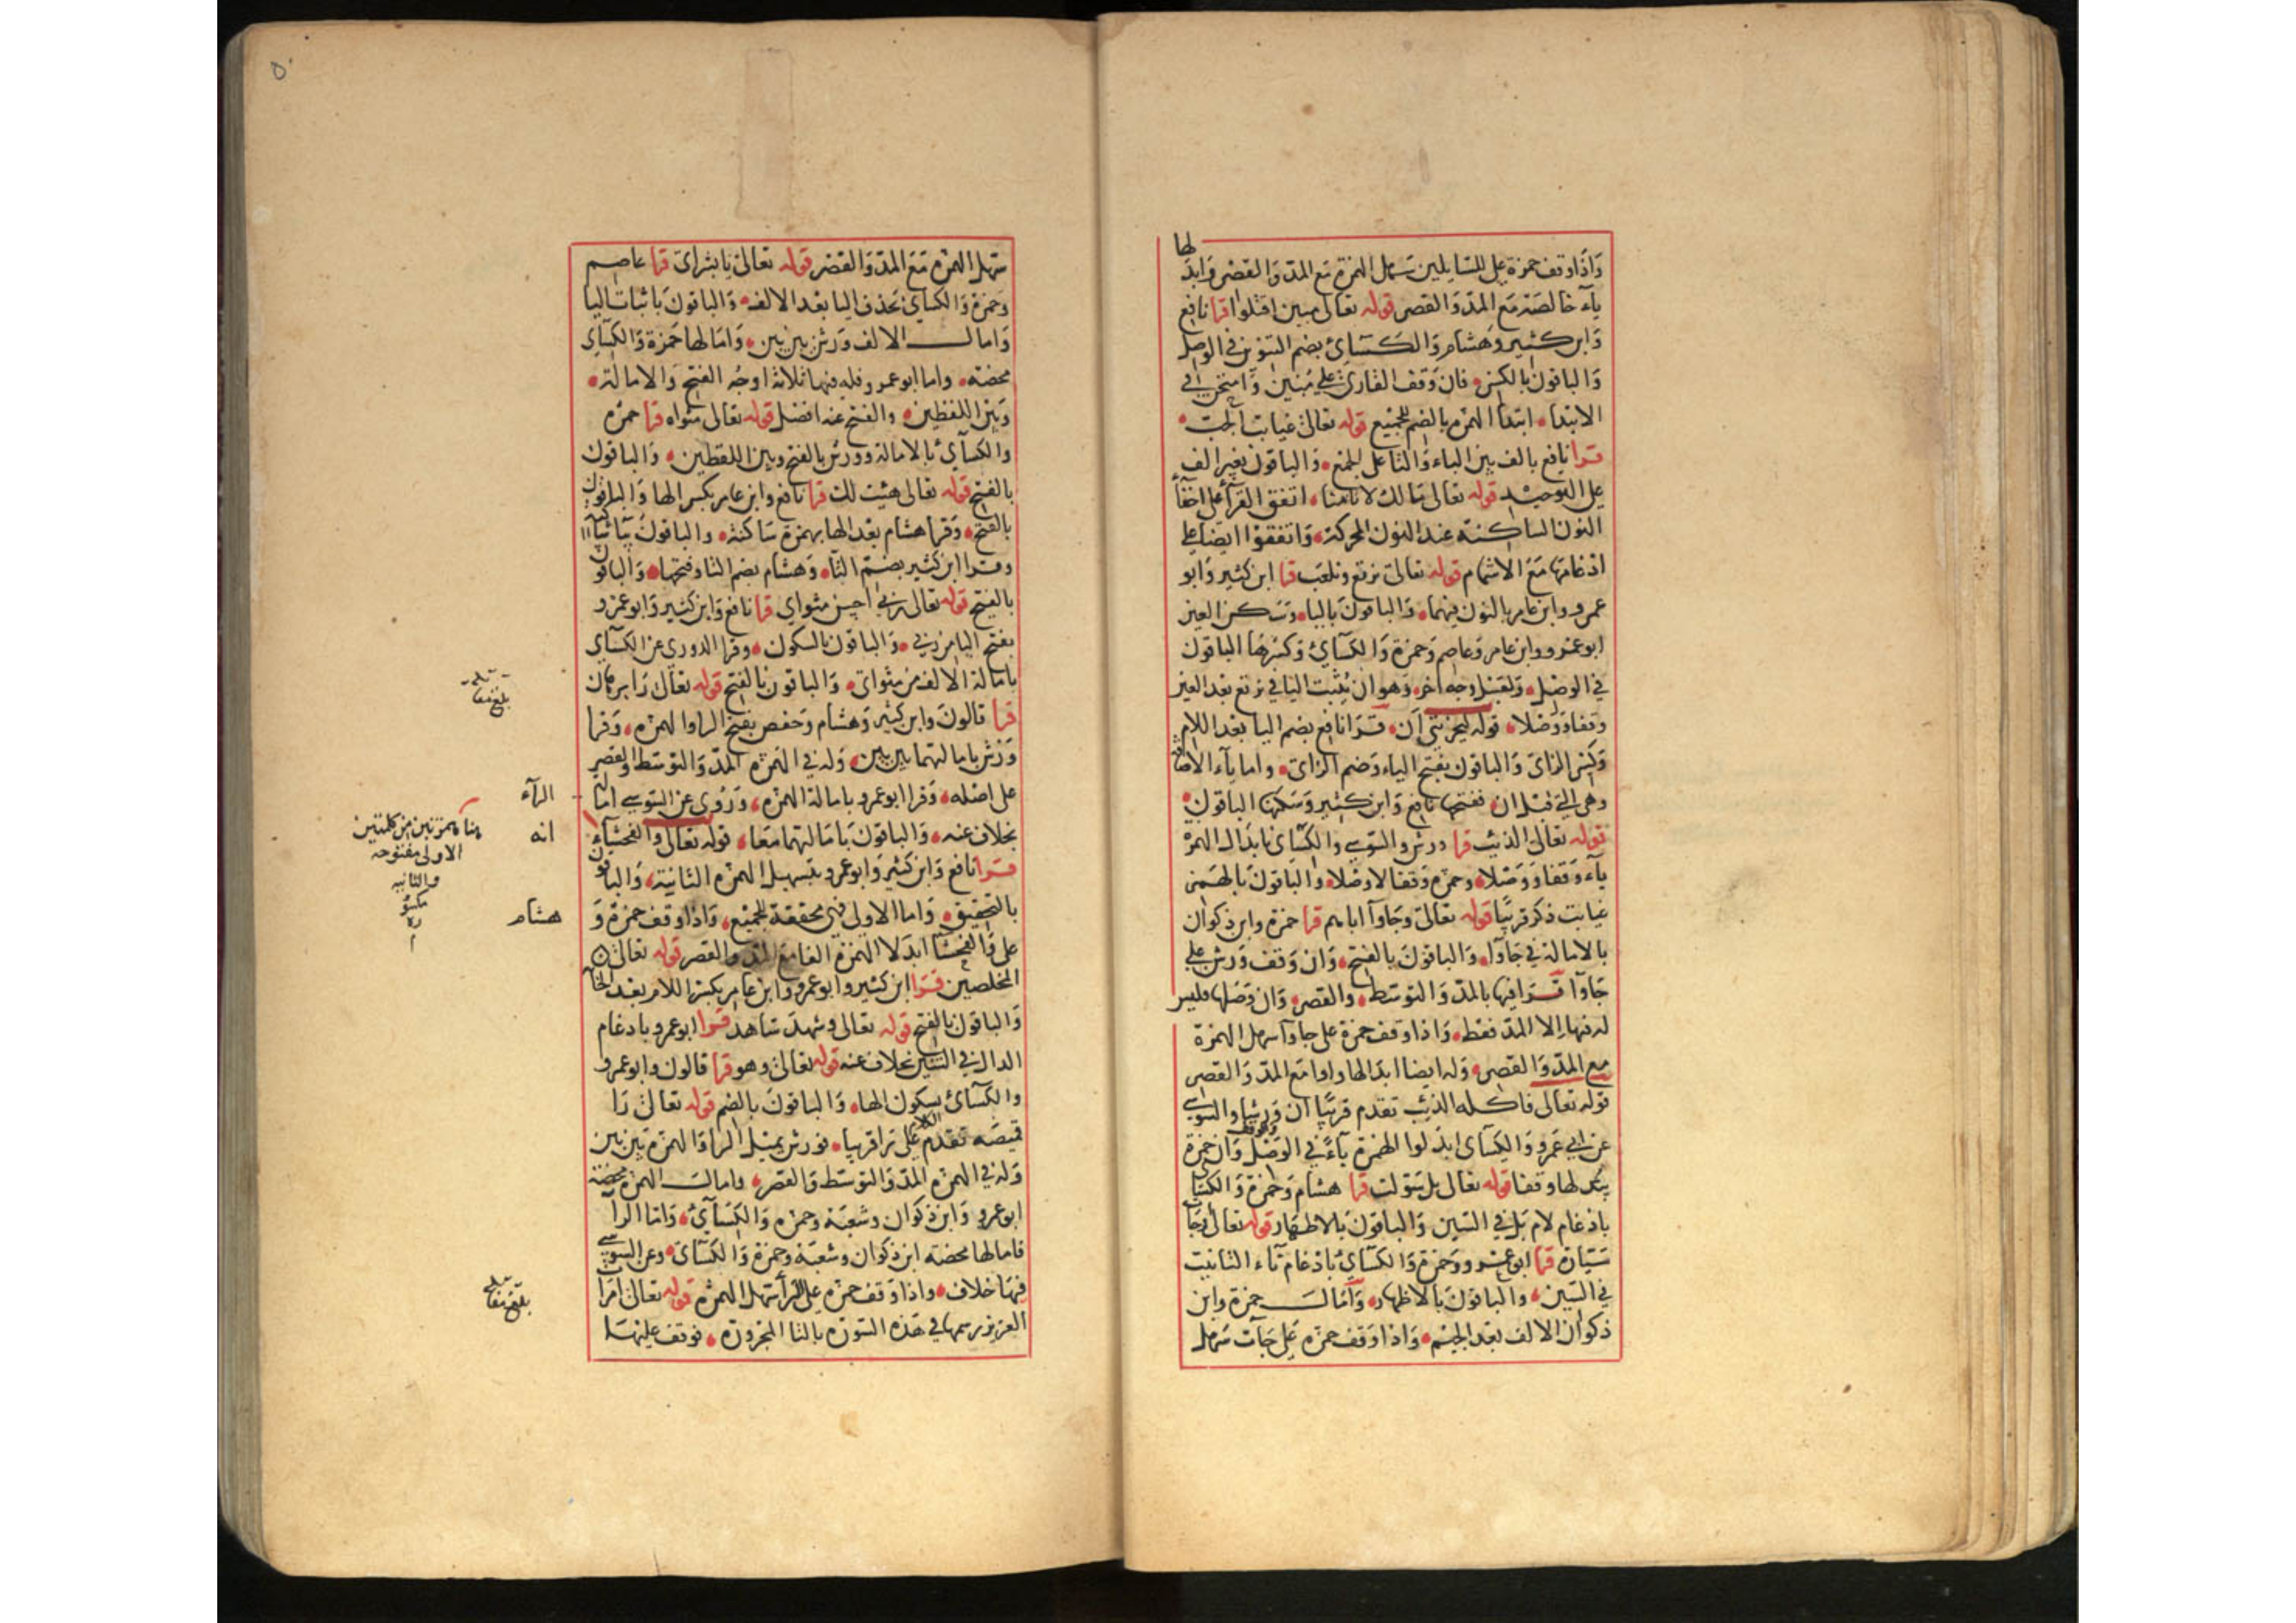 لها
وَاذَا وقف حمزة على للسايلين سَهل الهمزة مَع المدّ وَالقصر وَابد
يآء خالصَة مَع المدّ وَالقصر قوله تعالى مبين اقتلوا قرا نافع
وَابن كثير وَهشام وَالكسَاىُٔ بضم التنوين في الوصل
وَالباقون بالكسر فان وَقف القارئ على مُبين وَامتحن في
الابتدا ابتدا الهمزه بالضم للجميع قوله تعالى غيابت الجبّ
قرا نافع بالف بين الباء وَالتا على الجمع وَالباقون بغير الف
على التوحيد قوله تعالى مَا لك لا تامنا اتفق القرآء على اخفآء
النون الساكنة عند النون المحركة وَاتفقوا ايضا على
ادغامها مَعَ الاشمام قوله تعالى نرتع ونلعب قرا ابن كثير وَابو
عمرو وابن عامر بالنون فيهما وَالباقون باليا وسكن العين
ابو عمرو وابن عامر وَعاصم وَحمزة وَالكسَآىُٔ وَكسرهَا الباقون
في الوصل وَلقنبل وجه اخر وَهو ان يُثبت اليا في نرتع بعد العين
وقفا وَوَصلا قوله ليحزننى اَن قرا نافع بضم اليا بعد اللام
وَكسر الزاى وَالباقون بفتح الياء وَضم الزاى واما يآء الاضافة
وهى التي قبل ان ففتحها نافع وَابن كثير وَسَكنها الباقون
قوله تعالى الذيب قرا ورش والسّوسي والكسَاى بابدَال الهمزة
يآء وَقفا وَوَصْلا وحمزه وَقفا لا وَصْلا وَالباقون بالهمز
غيابت ذكر قريبًا قوله تعالى وجَاوآ اباهم قرا حمزة وابن ذكوان
بالامالة في جَاوآ وَالباقونَ بالفتح وَان وَقف وَرش على
جَاوآ قرا فيها بالمدّ وَالتوسّط والقصر وَان وَصَلها فليس
له فيها اِلا المدّ فقط وَاذا وَقف حمزة على جاوآ سهل الهمزة
مع المدّ وَالقصر وَله ايضا ابدَالها واوا مَع المدّ وَالقصر
قوله تعالى فاكله الذيب تقدم قريبًا ان وَرشا والسّوسي
عن ابي عَمرو وَالكسَآى ابدَلوا الهمزة يآءً في الوَصْل وَان حمزة
يبدلها وقفا قوله تعالى بل سَوّلت قرا هشام وَحمزة وَالكسَا
بادغام لام بَل في السّين وَالباقون بالاظهار قوله تعالى وجَآءت
سَيّارة قرا ابو عمرو وَحمزة وَالكسَآىُٔ بادغام تآء التانيث
في السّين وَالباقون بالاظهار وَامَالَ حمزة وابن
ذكوان الالف بَعد الجيم وَاذا وَقف حمزه على جَآت سَهل
سَهل الهمزه مَعَ المدّ وَالقصر قوله تعالى يا بشراى قرا عاصم
وَحمزة وَالكساىُٔ بحَذف اليا بَعد الالف وَالباقونَ باثبات اليا
وَامال الالف وَرش بين بين وَامَالها حَمزة وَالكسَاى
محضَة واما ابو عمرو فله فيها ثلاثة اوجُه الفتح وَالامالة
وَبين اللفظين والفتح عنه افضل قوله تعالى مثواه قرا حمزه
والكسَآىُٔ بالامالة وورش بالفتح وبين اللفظين وَالباقون
بالفتح قوله تعالى هيت لك قرا نافع وابن عامر بكسر الها وَالباقون
بالفتح وَقرا هشام بعد الها بهمزة سَاكنة والباقونَ بيآء
وقرا ابن كثير بضمّ التآء وَهشام بضم التا وفتحها وَالباقون
بالفتح قوله تعالى ربي احسن مثواي قرا نافع وَابن كثير وَابو عمرو
بفتح اليا من ربي وَالباقون بالسكون وقرا الدوري عن الكسَآي
بامَالة الالف من مثواى وَالباقون بالفتح قوله تعالى رَا برهان
قرا قالونَ وابن كثير وَهشام وَحفص بفتح الرا والهمزه وَقرا
وَرش بامالتهما بين بين وَله في الهمزه المدّ وَالتوسّط والقصر
على اصْله وَقرا ابو عمرو بامالة الهمزه وَرُوى عن السّوسي اما
بخلاف عنه وَالباقونَ بامَالتهما مَعا قوله تعالى وَالفحشآء
قرا نافع وَابن كثير وَابو عمرو بتسهيل الهمزه الثانية وَالباقون
بالتحقيق وَاما الاولى فهى محققة للجميع وَاذا وقف حمزة وَ
على وَالفحشآ ابدَلا الهمزة الفا مع المدّ والقصر قوله تعالى
المخلصين قرا ابن كثير وابو عمرو وابن عَامر بكسر اللام بَعد الخآ
وَالباقون بالفتح قوله تعالى وشهدَ شاهد قرا ابو عمرو بادغام
الدال في الشين بخلاف عنه قوله تعالى وهو قرا قالون وابو عمرو
والكسَآىُٔ بسكون الها وَالباقونَ بالضم قوله تعالى رَا
قميصَه تقدم الكلام على رَا قريبا فورش يميل الرا وَالهمزة بَين بين
وَله في الهمزه المدّ وَالتوسّط وَالقصر وامال الهمزه محضَة
ابو عمرو وَابن ذكوان وَشعبَة وحمزه وَالكسَآىُٔ وَامّا الرآ
فامالها محضَه ابن ذكوان وشعبَة وحمزة وَالكسَآى وعن السّوسي
فيهَا خلاف واذا وَقف حمزه على رَأ سَهل الهمزه قوله تعالى امرَات
العزيز رسمها في هَذه السّورَة بالتا المجرورَة فوقف عليهَا
بلغ مقابلة
الرآء
انه
هنا همزتين من كلمتين
الاولى مفتوحه
والثانيه
مكسو
رة
هشام
بلغ مقابلة
٥٠